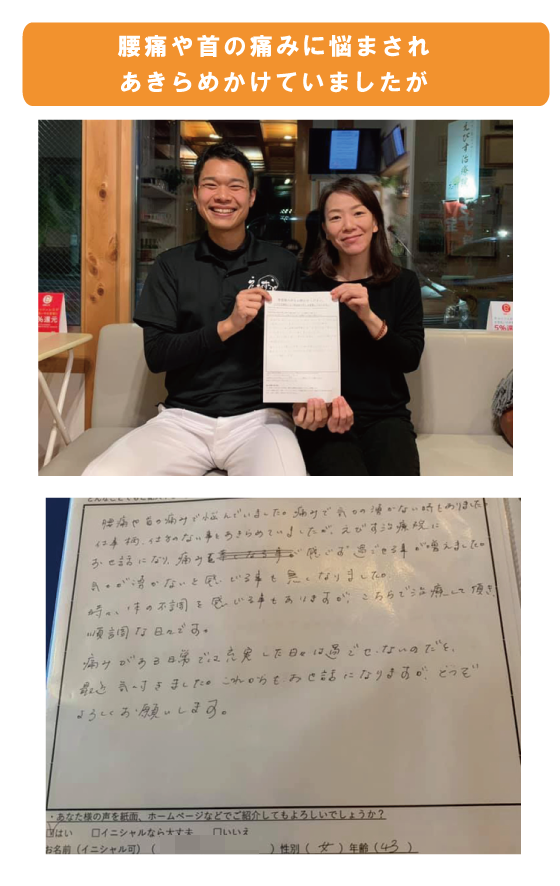 腰痛や首の痛みに悩まされ
あきらめかけていましたが
えびす治療院
腰痛や首の痛みで悩んでいました。痛みで気力の湧かない時もありました
仕事柄、仕方のない事もあきらめていましたが、えびす治療院に
お世話になり、痛みを感じず過ごせる事が増えました。
気力が湧かないと感じる事も無くなりました。
時々、体の不調を感じる事もありますが、こちらで治療して頂き
順調な日々です。
痛みがある日常では充実した日々は過ごせないのだと、
最近気づきました。これからもお世話になりますが、どうぞ
よろしくお願いします。
・あなた様の声を紙面、ホームページなどでご紹介してもよろしいでしょうか？
☑はい　□イニシャルなら大丈夫　□いいえ
お名前（イニシャル可）（　　）性別（女）年齢（43）